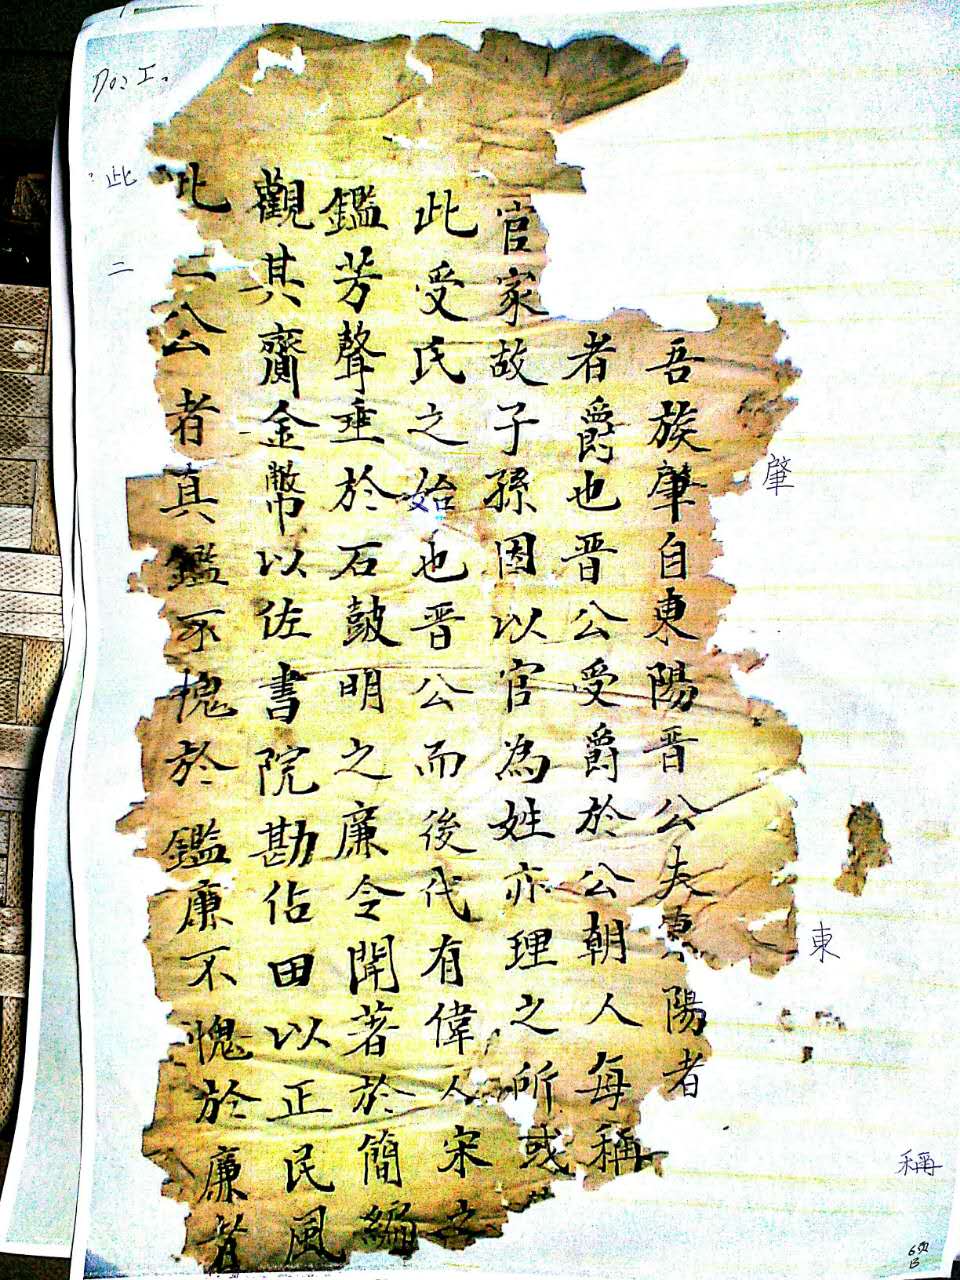 吾族肇自東陽晋公夫東陽者
者爵也晋公受爵於公朝人每稱
官家故子孫因以官為姓亦理之所或
此受氏之始也晋公而後代有偉人宋之
鑑芳聲垂於石鼓明之廉令聞著於簡編
觀其齎金幣以佐書院勘佔田以正民風
此二公者真鑑不愧於鑑廉不愧於廉者
此
二
肇
東
稱